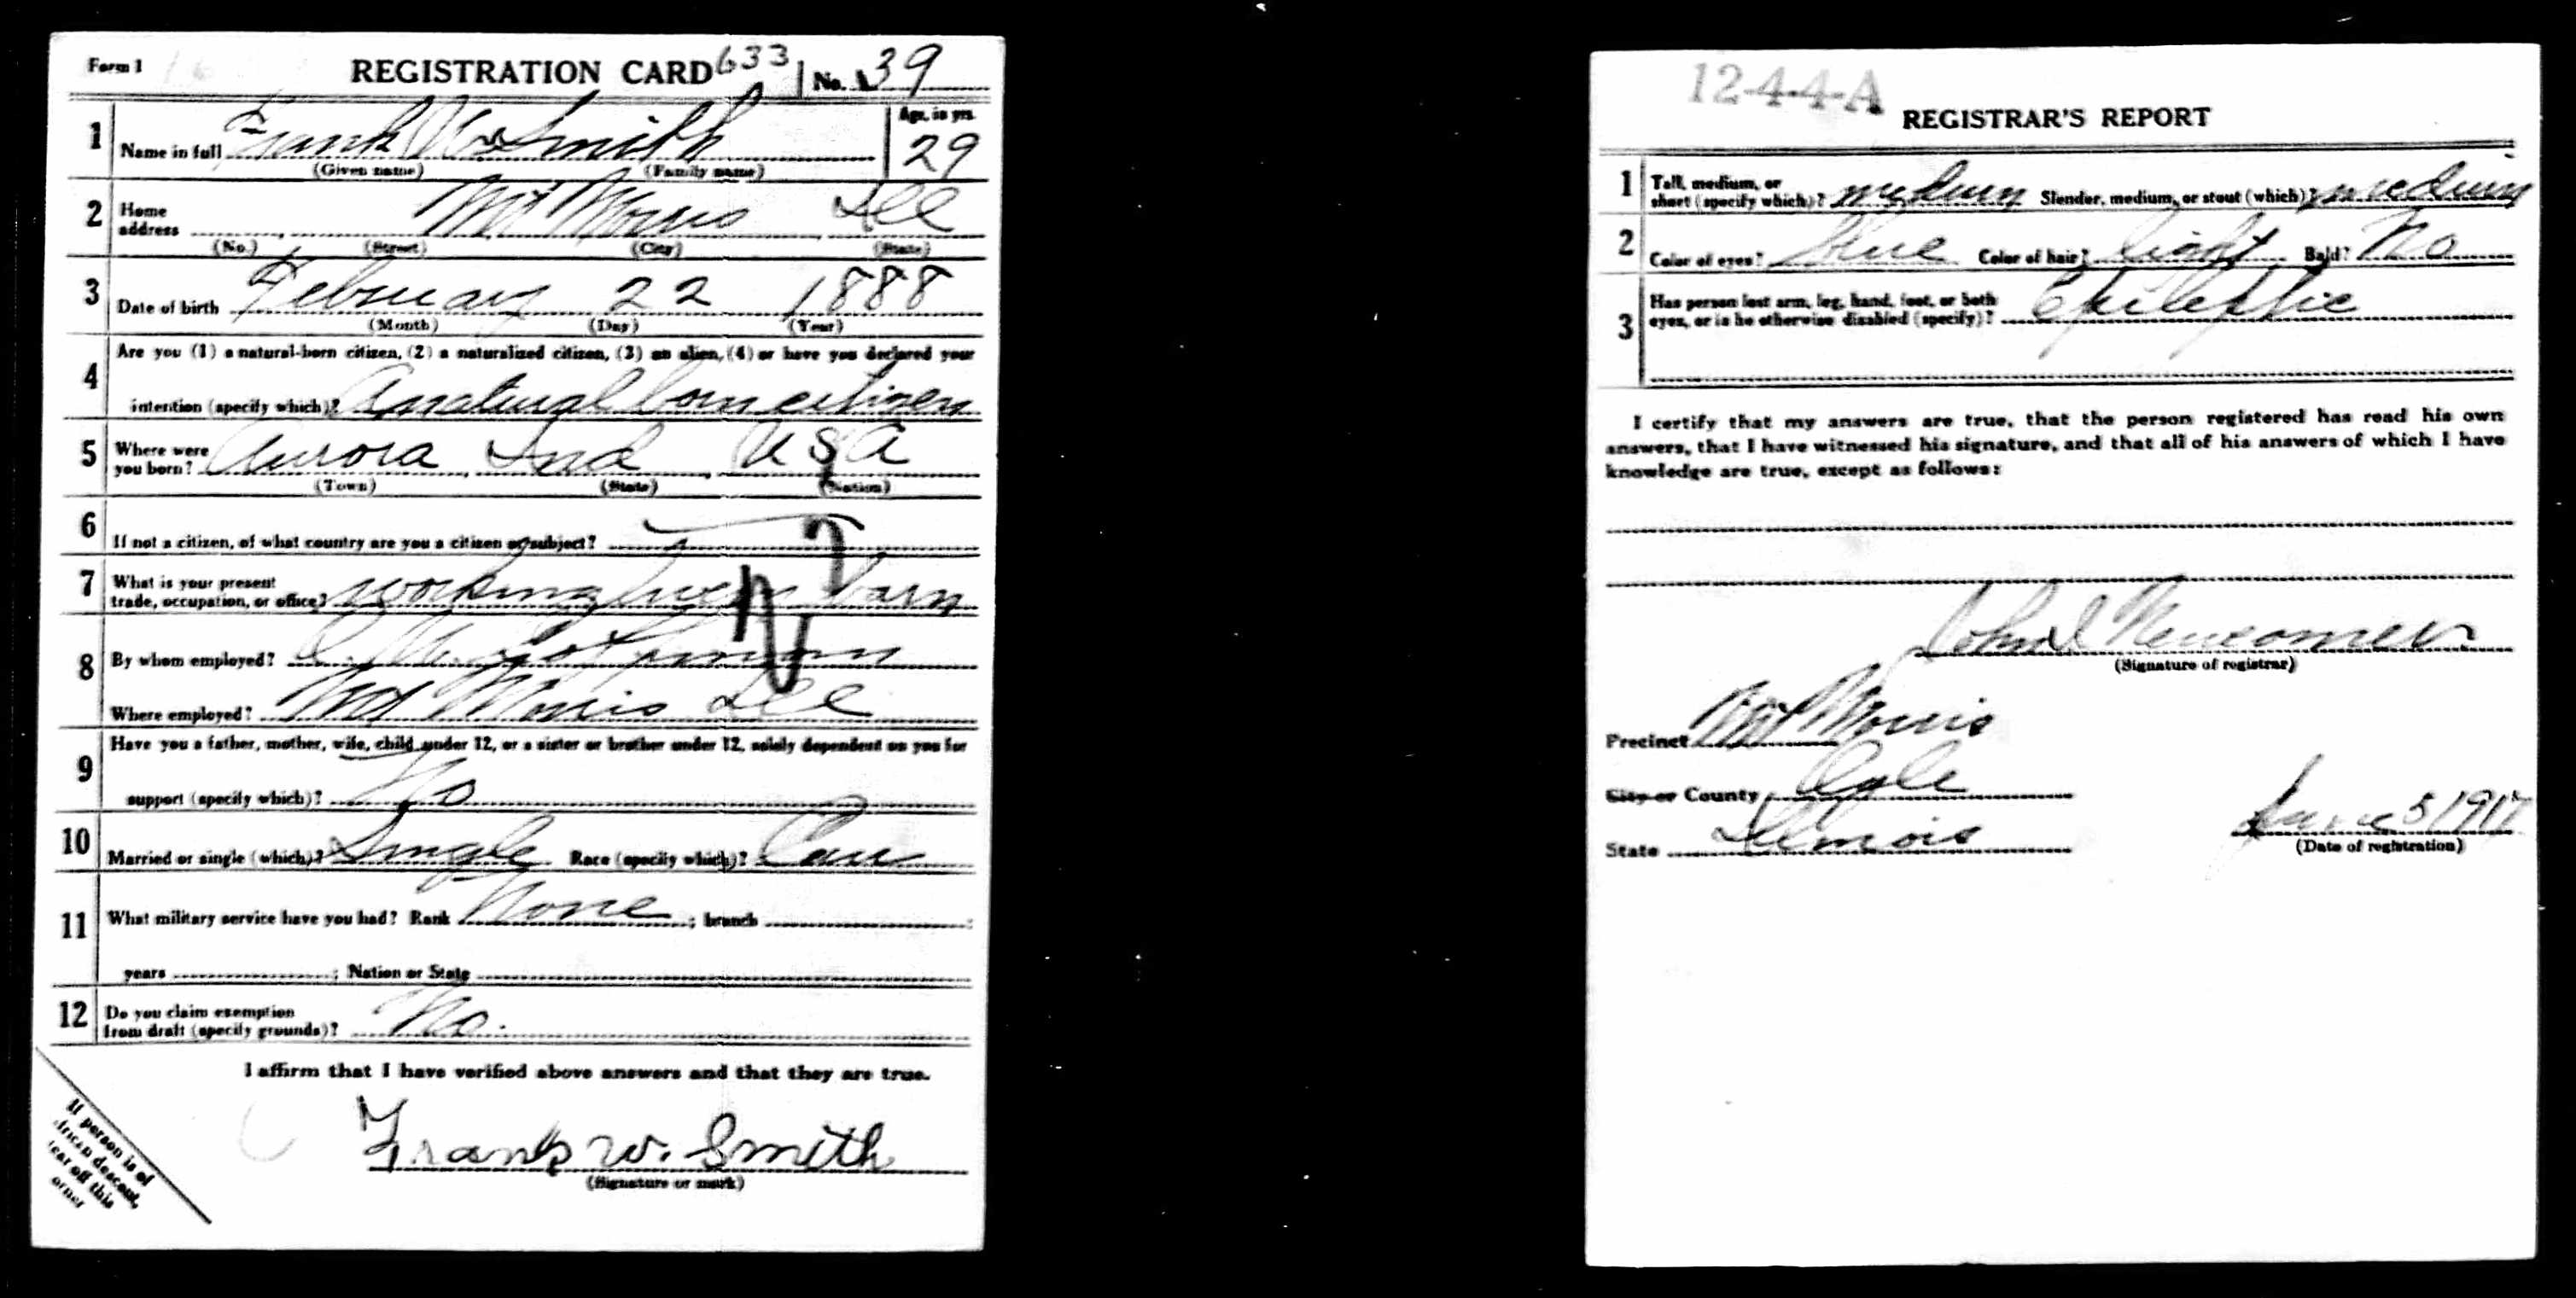 Form 1 REGISTRATION CARD 633 No. 39
1 Name in full Frank W Smith Age, in yrs. 29
(Given name) (Family name)
2 Home address Mt Morris Ill
(No.) (Street) (City) (State)
3 Date of birth February 22 1888
(Month) (Day) (Year)
4 Are you (1) a natural-born citizen, (2) a naturalized citizen, (3) an alien, (4) or have you declared your
intention (specify which)? A natural born citizen
5 Where were you born? Aurora Ind USA
(Town) (State) (Nation)
6 If not a citizen, of what country are you a citizen or subject?
7 What is your present trade, occupation, or office? working barn
8 By whom employed?
Where employed? Mt Morris Ill
9 Have you a father, mother, wife, child under 12, or a sister or brother under 12, solely dependent on you for
support (specify which)? No
10 Married or single (which)? Single Race (specify which)? Cau
11 What military service have you had? Rank None ; branch ;
years ; Nation or State
12 Do you claim exemption from draft (specify grounds)? No.
I affirm that I have verified above answers and that they are true.
Frank W. Smith
(Signature or mark)
If person is of
African descent,
tear off this
corner
12-4-4-A
REGISTRAR'S REPORT
1 Tall, medium, or short (specify which)? medium Slender, medium, or stout (which)? medium
2 Color of eyes? blue Color of hair? light Bald? No
3 Has person lost arm, leg, hand, foot, or both eyes, or is he otherwise disabled (specify)? Epileptic
I certify that my answers are true, that the person registered has read his own
answers, that I have witnessed his signature, and that all of his answers of which I have
knowledge are true, except as follows:
Newcomer
(Signature of registrar)
Precinct Mt Morris
City or County Ogle
State Illinois
June 5 1917
(Date of registration)